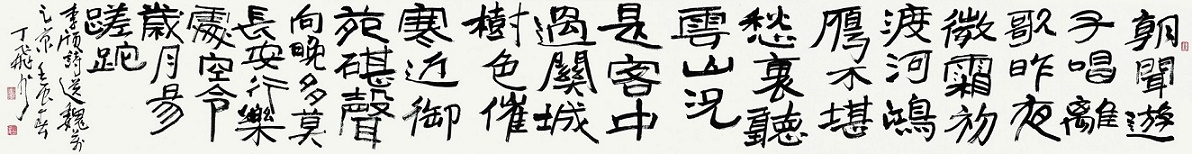 朝聞遊
子唱離
歌昨夜
微霜初
渡河鴻
鴈不堪
愁裏聽
雲山況
是客中
過關城
樹色催
寒近御
苑碪聲
向晚多莫
長安行樂
處空令
歲月易
蹉跎
李頎詩送魏万
之京壬辰春
丁飛